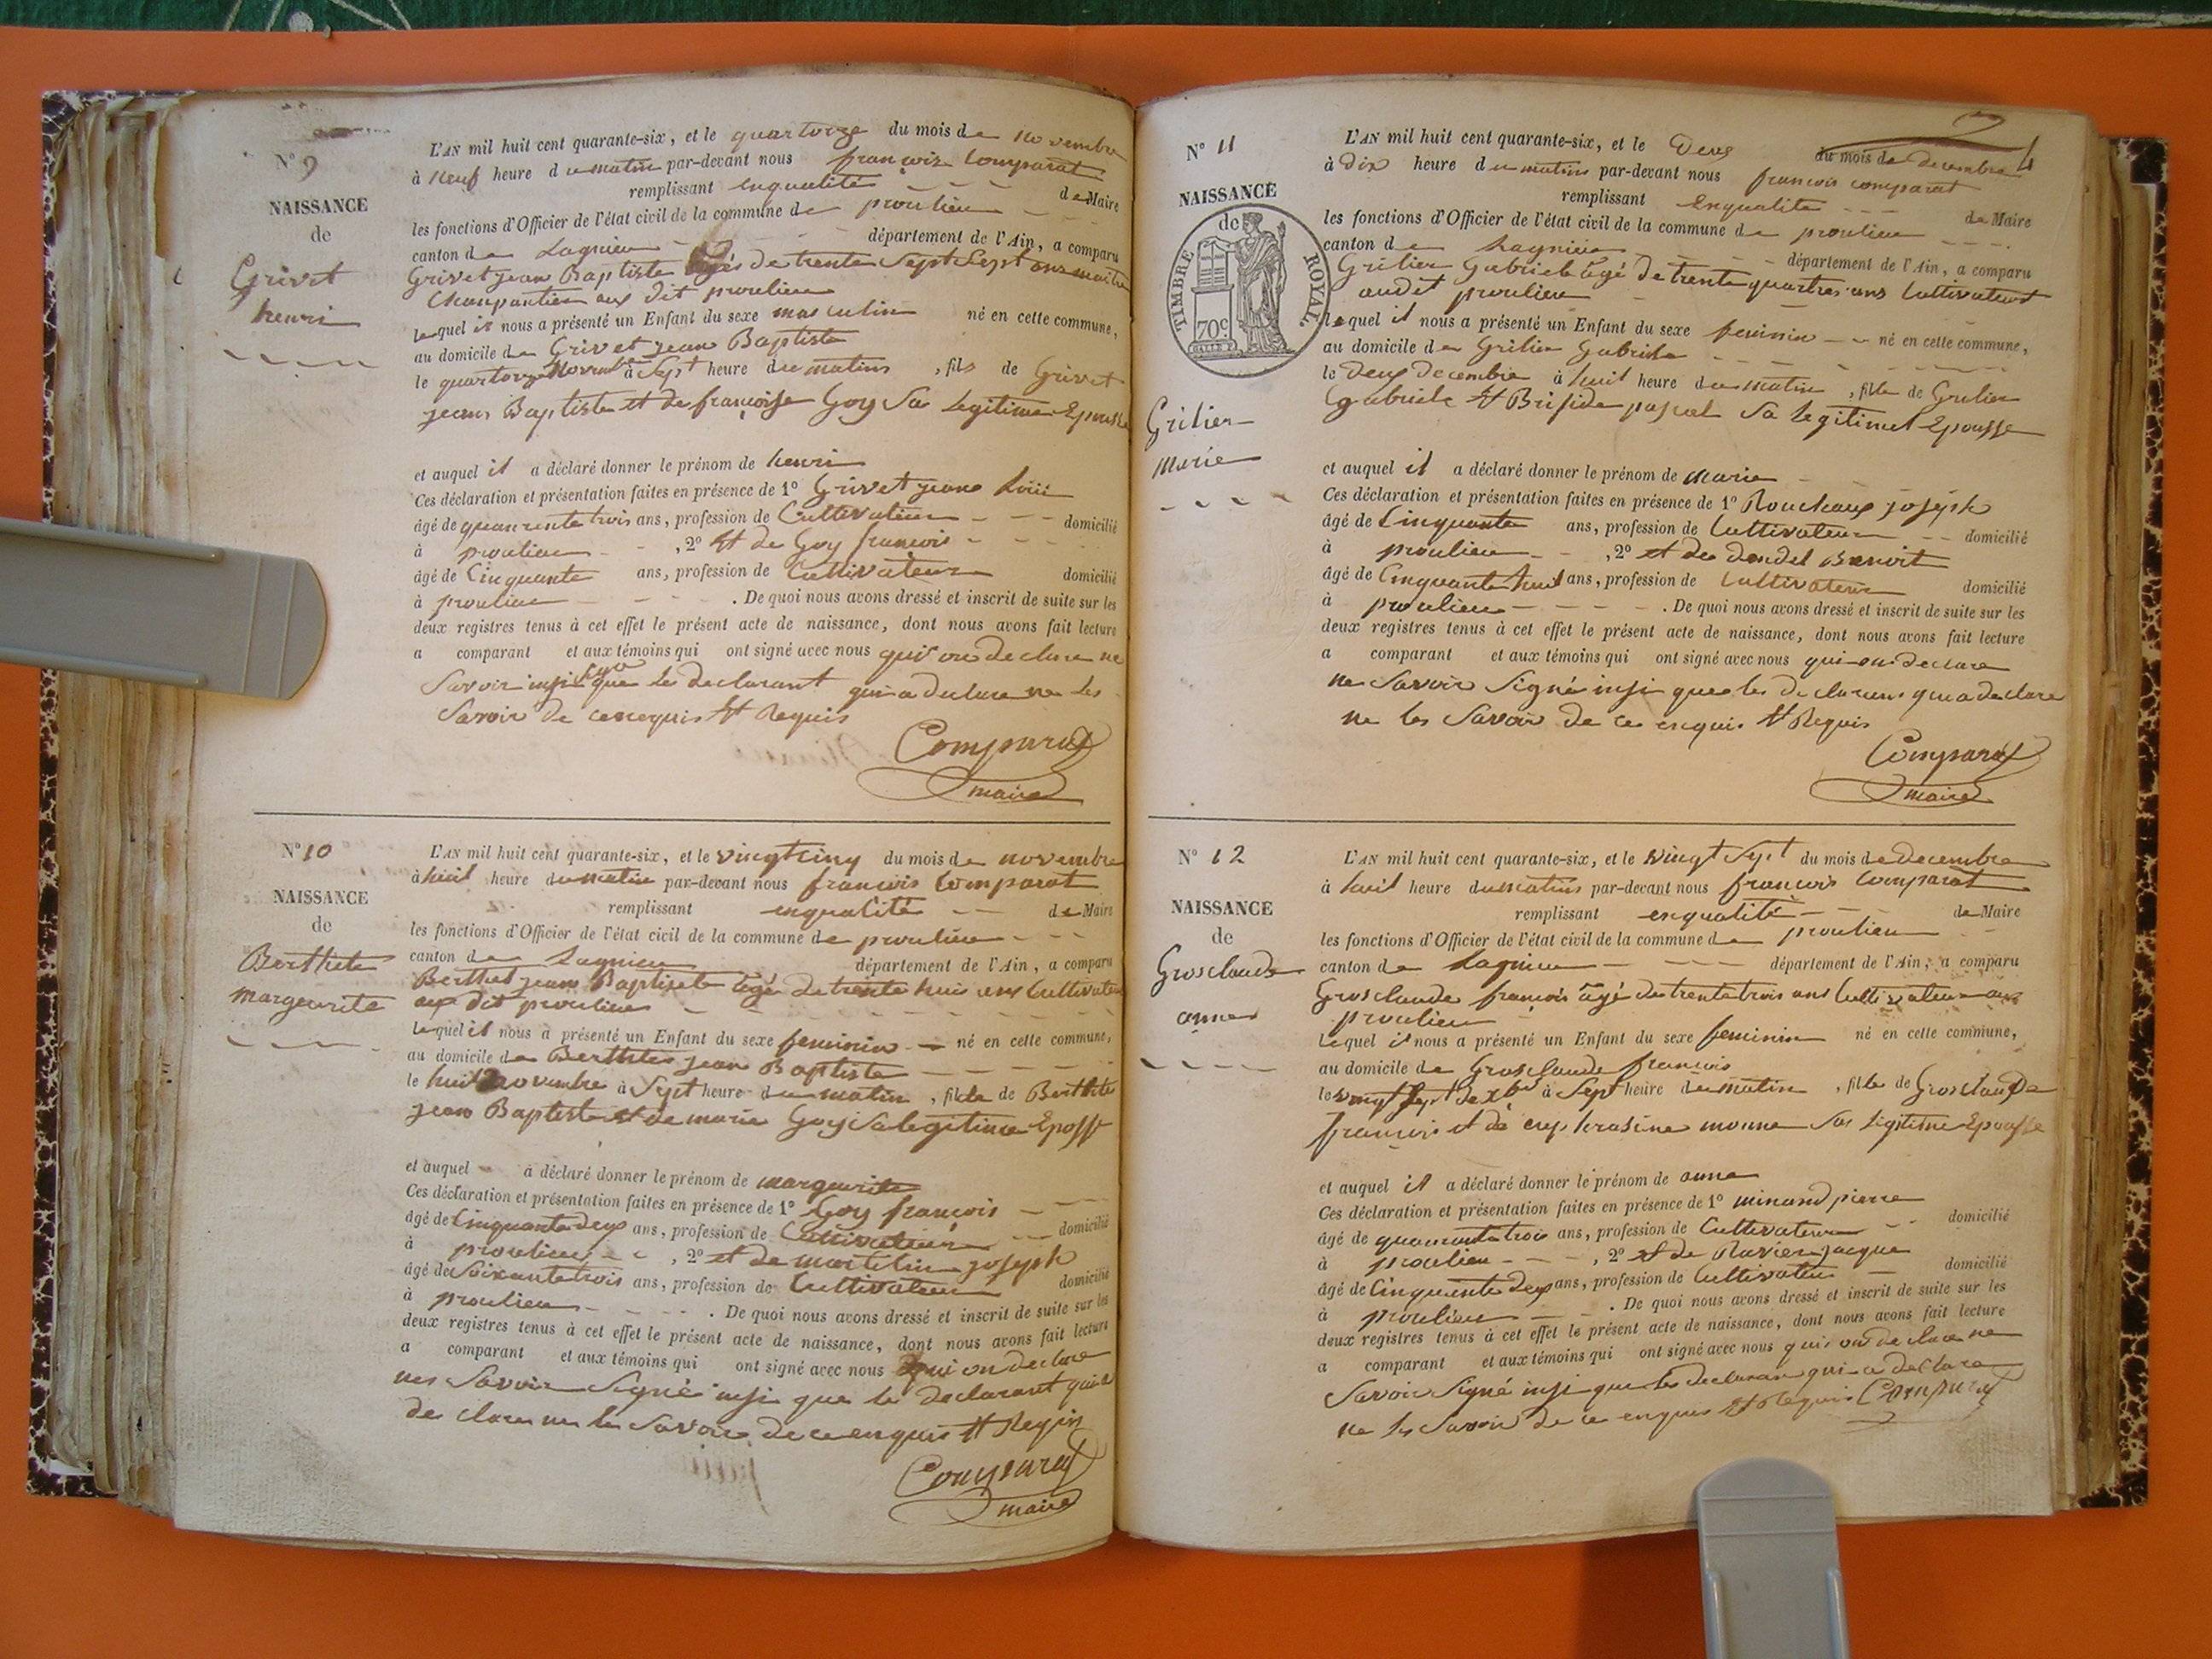 N° 9
NAISSANCE
de
Grivet
henri
L'AN mil huit cent quarante-six, et le quartorze du mois de novembre
à neuf heure du matin par-devant nous françois Comparat
remplissant enqualité de Maire
les fonctions d'Officier de l'état civil de la commune de proulieu
canton de Lagnieu département de l'Ain, a comparu
Grivet jean Baptiste agés de trente Sept ans maitre
Charpantier aux dit proulieu
lequel il nous a présenté un Enfant du sexe masculin né en cette commune,
au domicile de Grivet jean Baptiste
le quartorze à Sept heure du matin, fils de Grivet
jean Baptiste et de françoise Goy Sa legitime Epousse
et auquel il a déclaré donner le prénom de henri
Ces déclaration et présentation faites en présence de 1° Grivet jean
âgé de quarente trois ans, profession de Cultivateur domicilié
à proulieu, 2° et de Goy françois
âgé de Cinquante ans, profession de Cultivateur domicilié
à proulieu. De quoi nous avons dressé et inscrit de suite sur les
deux registres tenus à cet effet le présent acte de naissance, dont nous avons fait lecture
a comparant et aux témoins qui ont signé avec nous qui on declare ne
Savoir insi que le declarant qui a declare ne les
Savoir de ce enquis et Requis
Comparat
maire
N° 10
NAISSANCE
de
Berthet
margeurite
L'AN mil huit cent quarante-six, et le vingt cinq du mois de novembre
à huit heure du matin par-devant nous francois Comparat
remplissant enqualité de Maire
les fonctions d'Officier de l'état civil de la commune de proulieu
canton de Lagnieu département de l'Ain, a comparu
Berthet jean Baptiste agé de trente huit ans Cultivateur
aux dit proulieu
lequel il nous a présenté un Enfant du sexe feminin né en cette commune,
au domicile de Berthet jean Baptiste
le novembre à Sept heure du matin, fille de Berthet
jean Baptiste et de marie Goy Sa legitime Eposse
et auquel a déclaré donner le prénom de margeurite
Ces déclaration et présentation faites en présence de 1° Goy françois
âgé de Cinquante deux ans, profession de Cultivateur domicilié
à proulieu, 2° et de martelin joseph
âgé de Soixante trois ans, profession de Cultivateur domicilié
à proulieu. De quoi nous avons dressé et inscrit de suite sur les
deux registres tenus à cet effet le présent acte de naissance, dont nous avons fait lecture
a comparant et aux témoins qui ont signé avec nous qui on declare
nes Savoir Signé insi que le declarant qui a
declare ne les Savoir de ce enquis et
Comparat
maire
N° 11
NAISSANCE
de
TIMBRE ROYAL
70c
Grilier
marie
L'AN mil huit cent quarante-six, et le deux du mois de decembre
à dix heure du matin par-devant nous francois comparat
remplissant enqualité de Maire
les fonctions d'Officier de l'état civil de la commune de proulieu
canton de Lagnieu département de l'Ain, a comparu
Grilier Gabriele agé de trente quartres ans Cultivateur
audit proulieu
lequel il nous a présenté un Enfant du sexe feminin né en cette commune,
au domicile de Grilier Gabriele
le deux decembre à huit heure du matin, fille de Grilier
Gabriele et Briside pascal Sa legitime Epousse
et auquel il a déclaré donner le prénom de marie
Ces déclaration et présentation faites en présence de 1° joseph
âgé de Cinquante ans, profession de Cultivateur domicilié
à proulieu, 2° et de dendel Benoit
âgé de Cinquante huit ans, profession de Cultivateur domicilié
à proulieu. De quoi nous avons dressé et inscrit de suite sur les
deux registres tenus à cet effet le présent acte de naissance, dont nous avons fait lecture
a comparant et aux témoins qui ont signé avec nous qui on declare
ne Savoir Signé insi que les declarant qui a declare
ne les Savoir de ce enquis et Requis
Comparat
maire
N° 12
NAISSANCE
de
Grosclaude
anne
L'AN mil huit cent quarante-six, et le vingt Sept du mois de decembre
à huit heure du matin par-devant nous francois Comparat
remplissant enqualité de Maire
les fonctions d'Officier de l'état civil de la commune de proulieu
canton de Lagnieu département de l'Ain, a comparu
Grosclaude francois âgé de trente trois ans Cultivateur aux
proulieu
lequel il nous a présenté un Enfant du sexe feminin né en cette commune,
au domicile de Grosclaude francois
le vingt Sept à Sept heure du matin, fille de Grosclaude
francois et de monne Sa legitime Epousse
et auquel il a déclaré donner le prénom de anne
Ces déclaration et présentation faites en présence de 1° minand pierre
âgé de quarante trois ans, profession de Cultivateur domicilié
à proulieu, 2° et de Ravier jacque
âgé de Cinquante deux ans, profession de Cultivateur domicilié
à proulieu. De quoi nous avons dressé et inscrit de suite sur les
deux registres tenus à cet effet le présent acte de naissance, dont nous avons fait lecture
a comparant et aux témoins qui ont signé avec nous qui on declare ne
Savoir Signé insi que les declarant qui a declare
ne les Savoir de ce enquis et Requis Comparat